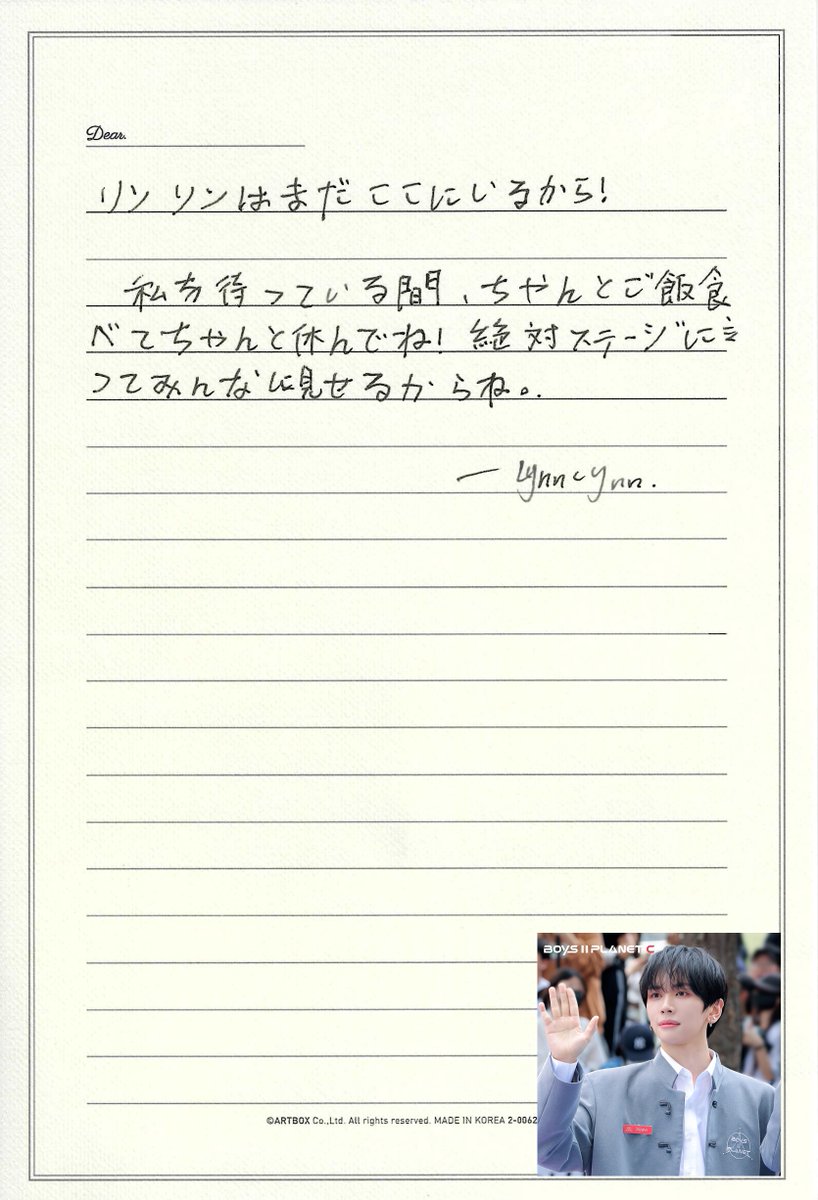 Dear.
リンリンはまだここにいるから!
私を待っている間、ちゃんとご飯食
べてちゃんと休んでね! 絶対ステージに立
ってみんなに見せるからね。
— LynnLynn.
BOYS II PLANET C
BOYS
II PLANET
©ARTBOX Co.,Ltd. All rights reserved. MADE IN KOREA 2-0062